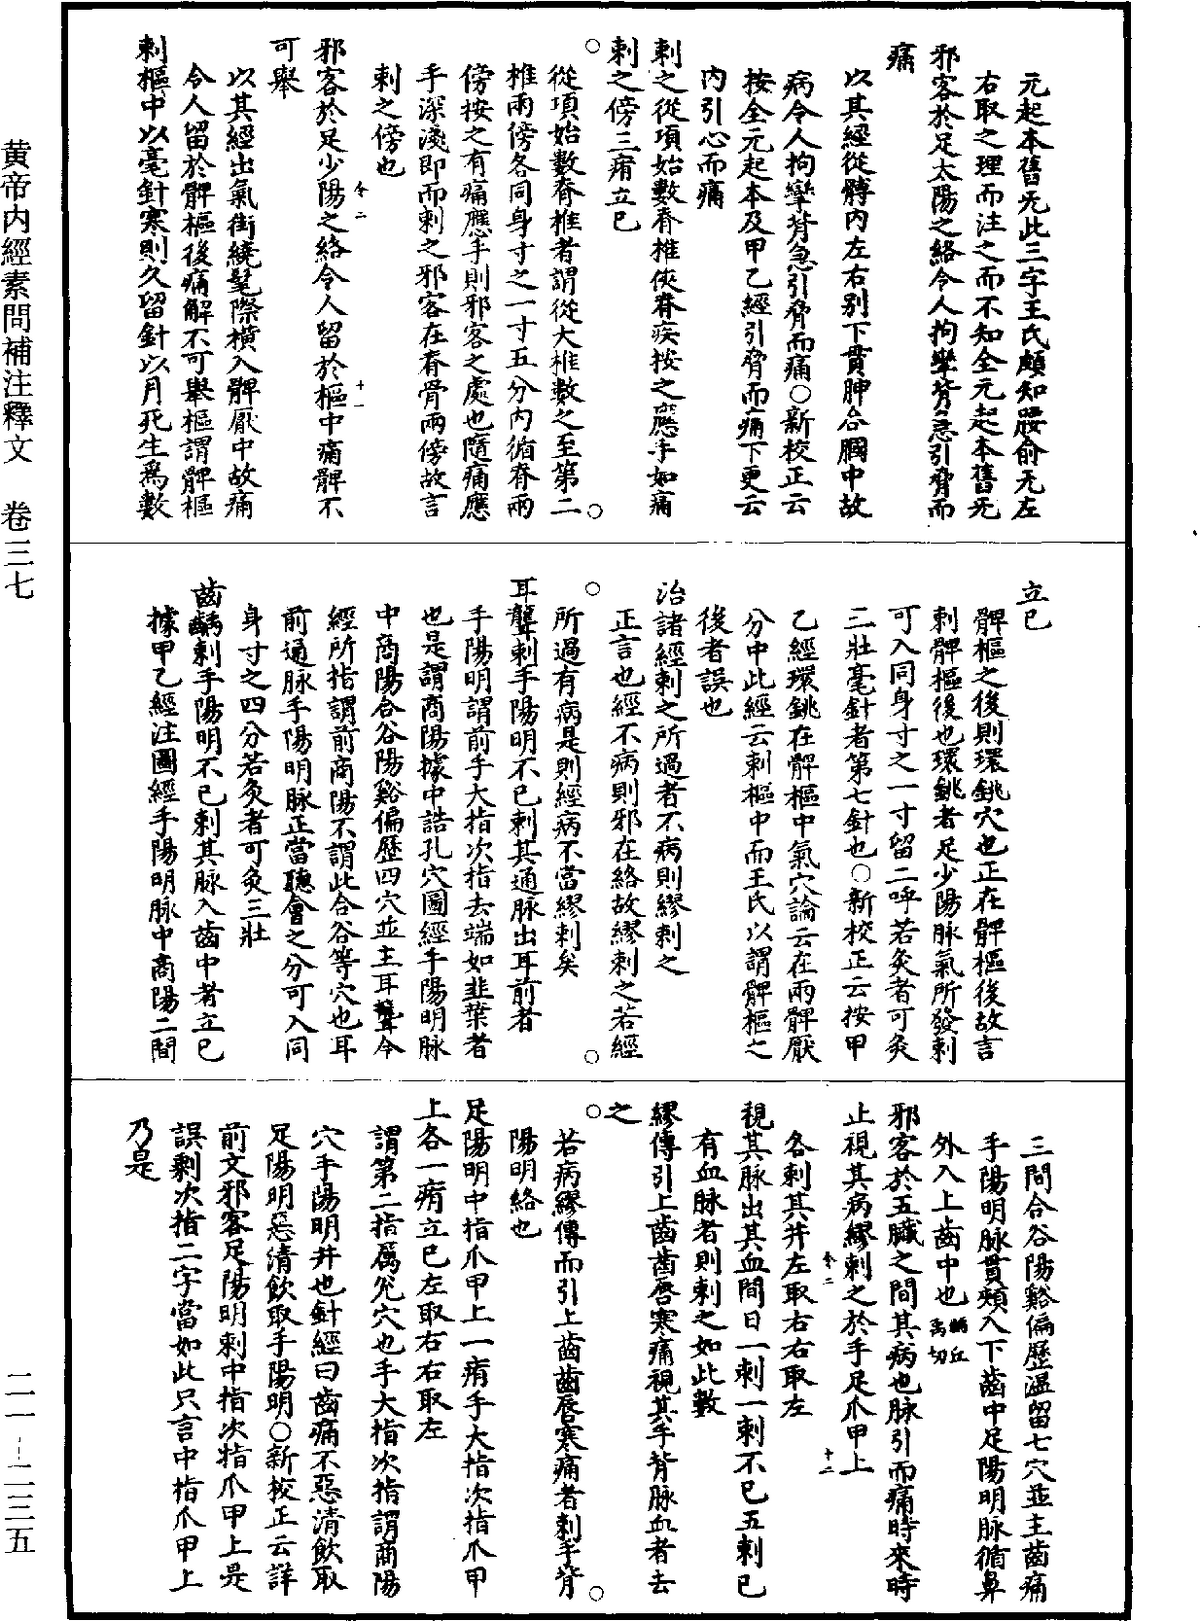 元起本舊无此三字王氏頗知腰俞无左
右取之理而注之而不知全元起本舊无
邪客於足太陽之絡令人拘攣背急引脅而
痛
以其經從髆內左右別下貫胂合膕中故
病令人拘攣背急引脅而痛○新校正云
按全元起本及甲乙經引脅而痛下更云
內引心而痛
刺之從項始數脊椎俠脊疾按之應手如痛
刺之傍三痏立已
從項始數脊椎者謂從大椎數之至第二
椎兩傍各同身寸之一寸五分內循脊兩
傍按之有痛應手則邪客之處也隨痛應
手深淺即而刺之邪客在脊骨兩傍故言
刺之傍也
邪客於足少陽之絡令人留於樞中痛髀不
可舉
以其經出氣街繞髦際橫入髀厭中故痛
令人留於髀樞後痛解不可舉樞謂髀樞
刺樞中以毫針寒則久留針以月死生爲數
立已
髀樞之後則環銚穴也正在髀樞後故言
刺髀樞後也環銚者足少陽脉氣所發刺
可入同身寸之一寸留二呼若灸者可灸
二壯毫針者第七針也○新校正云按甲
乙經環銚在髀樞中氣穴論云在兩髀厭
分中此經云刺樞中而王氏以謂髀樞之
後者誤也
治諸經刺之所過者不病則繆刺之
正言也經不病則邪在絡故繆刺之若經
所過有病是則經病不當繆刺矣
耳聾刺手陽明不已刺其通脉出耳前者
手陽明謂前手大指次指去端如韭葉者
也是謂商陽據中誥孔穴圖經手陽明脉
中商陽合谷陽谿偏歷四穴並主耳聾今
經所指謂前商陽不謂此合谷等穴也耳
前通脉手陽明脉正當聽會之分可入同
身寸之四分若灸者可灸三壯
齒齲刺手陽明不已刺其脉入齒中者立已
據甲乙經注圖經手陽明脉中商陽二間
三間合谷陽谿偏歷溫留七穴並主齒痛
手陽明脉貫頰入下齒中足陽明脉循鼻
外入上齒中也齲丘禹切
邪客於五臟之間其病也脉引而痛時來時
止視其病繆刺之於手足爪甲上
各刺其井左取右右取左
視其脉出其血間日一刺一刺不已五刺已
有血脉者則刺之如此數
繆傳引上齒齒唇寒痛視其手背脉血者去
之
若病繆傳而引上齒齒唇寒痛者刺手背
陽明絡也
足陽明中指爪甲上一痏手大指次指爪甲
上各一痏立已左取右右取左
謂第二指厲兌穴也手大指次指謂商陽
穴手陽明井也針經曰齒痛不惡清飲取
足陽明惡清飲取手陽明○新校正云詳
前文邪客足陽明刺中指次指爪甲上是
誤剩次指二字當如此只言中指爪甲上
乃是
黄帝內經素問補注釋文　卷三七
二一—二三五